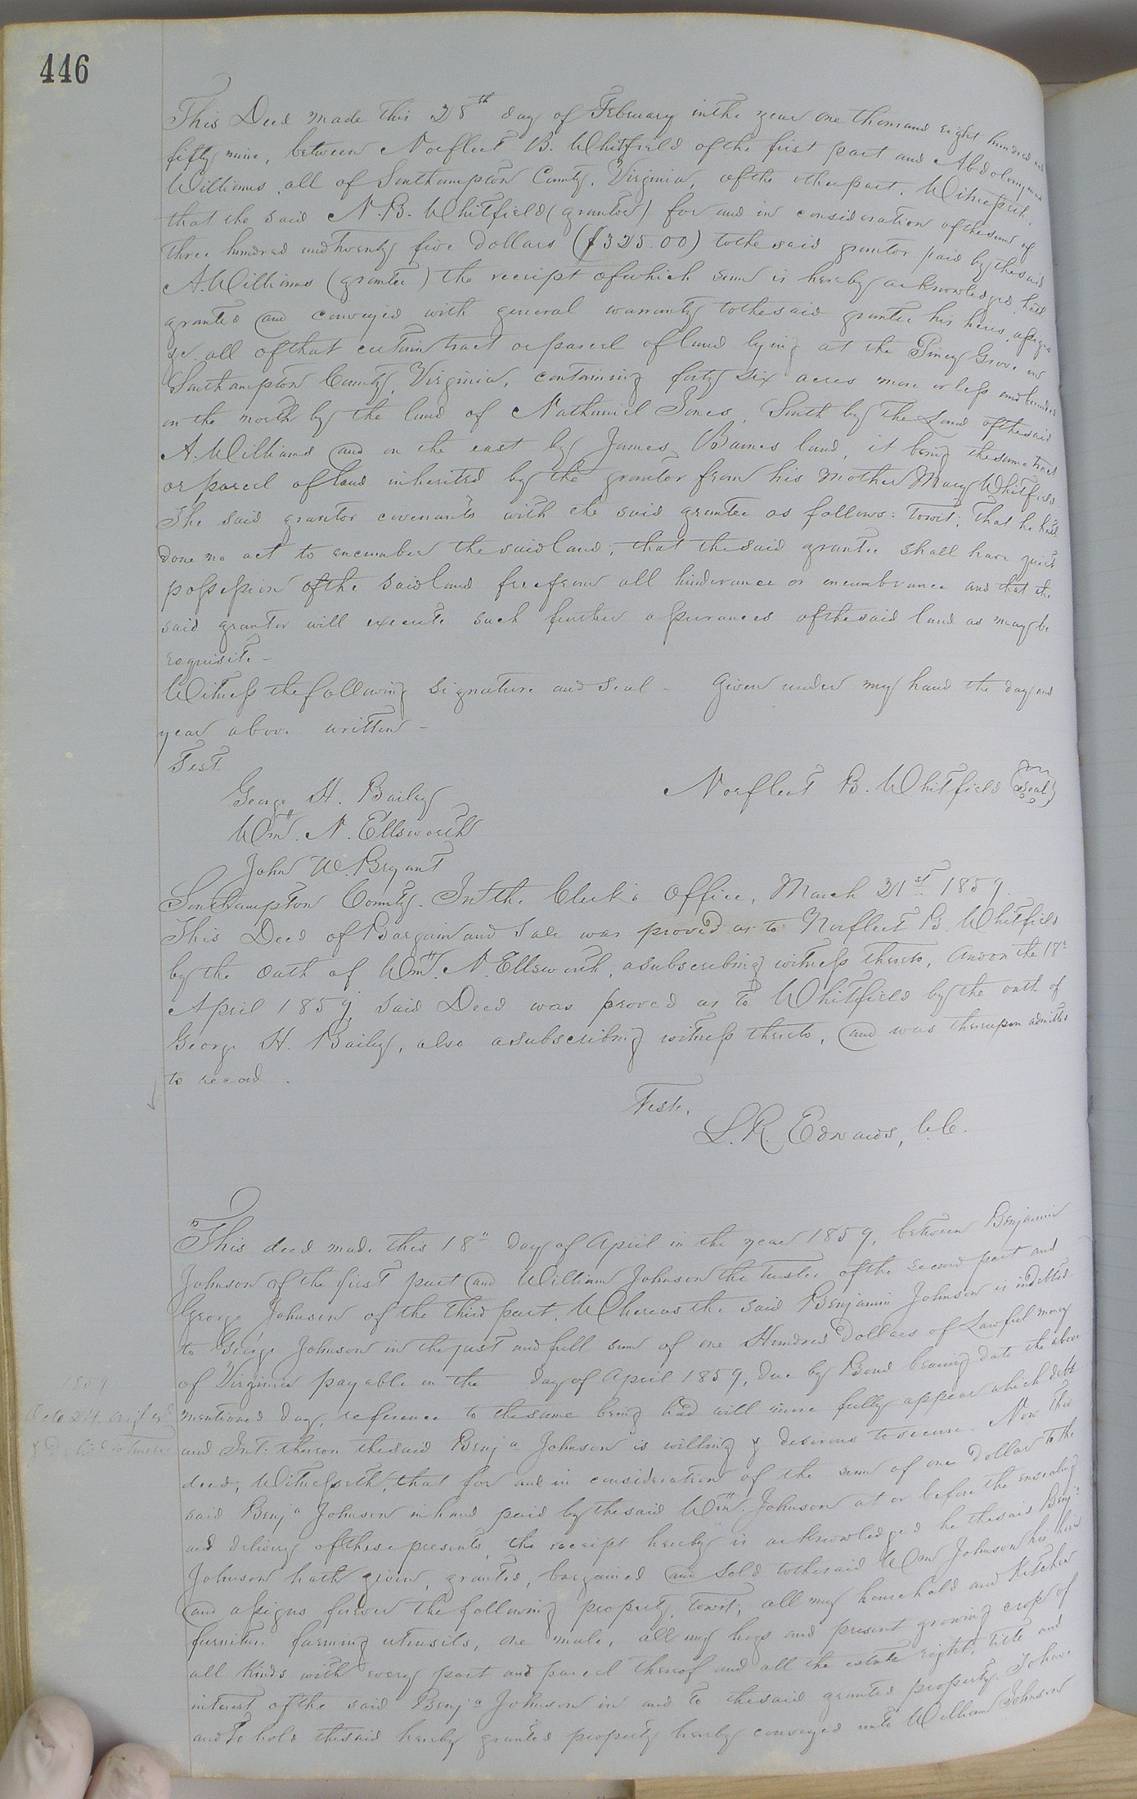 446
This Deed made this 28th day of February in the year one thousand eight hundred and
fifty nine, between Norfleet B. Whitfield of the first part and Abdolonymus
Williams, all of Southampton County, Virginia, of the other part. Witnesseth,
that the said N. B. Whitfield (grantor) for and in consideration of the sum of
three hundred and twenty five dollars ($325.00) to the said grantor paid by the said
A. Williams (grantee) the receipt of which sum is hereby acknowledged, hath
granted and conveyed with general warranty to the said grantee his heirs, assigns
&c. all of that certain tract or parcel of land lying at the Piney Grove in
Southampton County, Virginia, containing forty six acres more or less and bounded
on the north by the land of Nathaniel Jones, South by the Land of the said
A. Williams and on the east by James Barnes land, it being the same tract
or parcel of land inherited by the grantor from his mother Mary Whitfield
The said grantor covenants with the said grantee as follows: Towit; That he has
done no act to encumber the said land, that the said grantee shall have quiet
possession of the said land free from all hinderance or encumbrance and that the
said grantor will execute such further assurances of the said land as may be
requisite -
Witness the following signature and seal - Given under my hand the day and
year above written -
Test
George H. Bailey
Norfleet B. Whitfield (seal)
Wm. N. Ellsworth
John W. Bryant
Southampton County. In the Clerk's Office, March 21st 1859.
This Deed of Bargain and Sale was proved as to Norfleet B. Whitfield
by the oath of Wm. N. Ellsworth, a subscribing witness thereto, and on the 18th
April 1859, said Deed was proved as to Whitfield by the oath of
George H. Bailey, also a subscribing witness thereto, and was thereupon admitted
to record.
Teste,
L. R. Edwards, C.C.
This deed made this 18th day of April in the year 1859, between Benjamin
Johnson of the first part and William Johnson the trustee of the second part and
George Johnson of the third part. Whereas the said Benjamin Johnson is indebted
to George Johnson in the just and full sum of one Hundred Dollars of Lawful money
of Virginia payable on the day of April 1859, due by Bond bearing date the above
1859
mentioned day, reference to the same being had will more fully appear which debt
and Int. thereon the said Benja Johnson is willing & desirous to secure. Now this
deed, Witnesseth, that for and in consideration of the sum of one Dollar to the
said Benja Johnson in hand paid by the said Wm. Johnson at or before the ensealing
and delivery of these presents, the receipt hereby is acknowledged he the said Benja
Johnson hath given, granted, bargained and sold to the said Wm Johnson his heirs
and assigns forever the following property, Towit; all my household and Kitchen
furniture farming utensils, one mule, all my hogs and present growing crop of
all Kinds with every part and parcel thereof and all the estate right, title and
interest of the said Benja Johnson in and to the said granted property. To have
and to hold the said hereby granted property hereby conveyed unto William Johnson